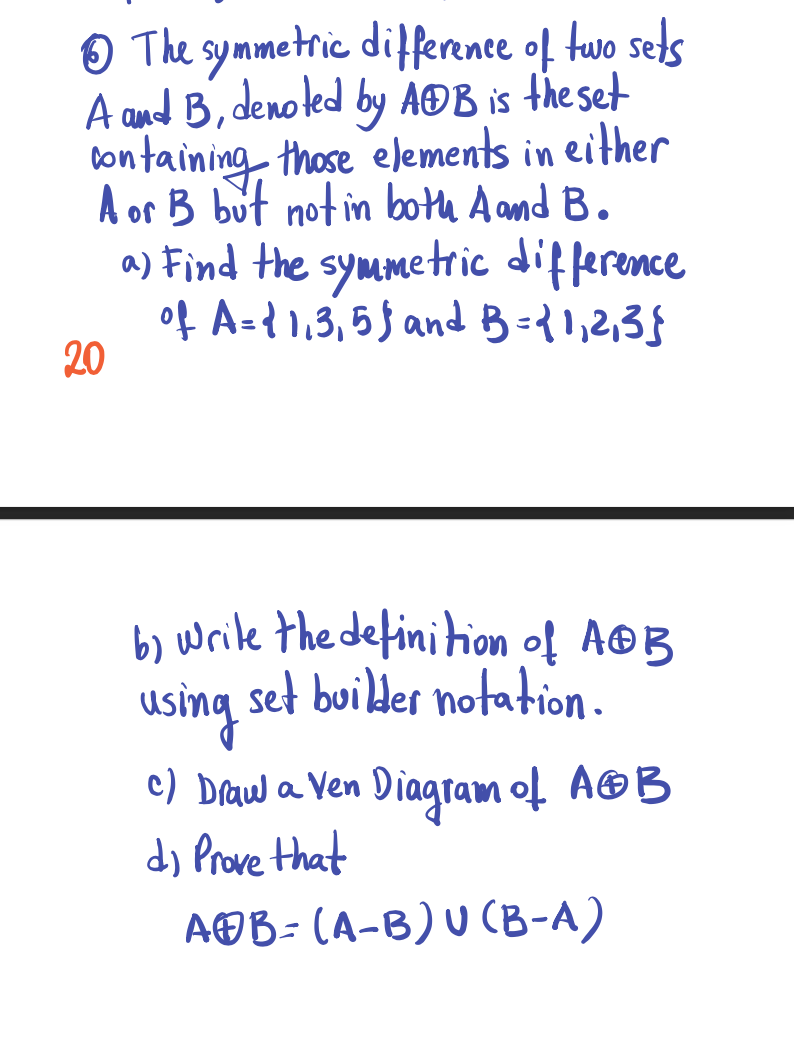 6 The symmetric difference of two sets
A and B, denoted by A⊕B is the set
containing those elements in either
A or B but not in both A and B.
a) Find the symmetric difference
of A={1,3,5} and B={1,2,3}
20
b) Write the definition of A⊕B
using set builder notation.
c) Draw a Ven Diagram of A⊕B
d) Prove that
A⊕B=(A-B)∪(B-A)